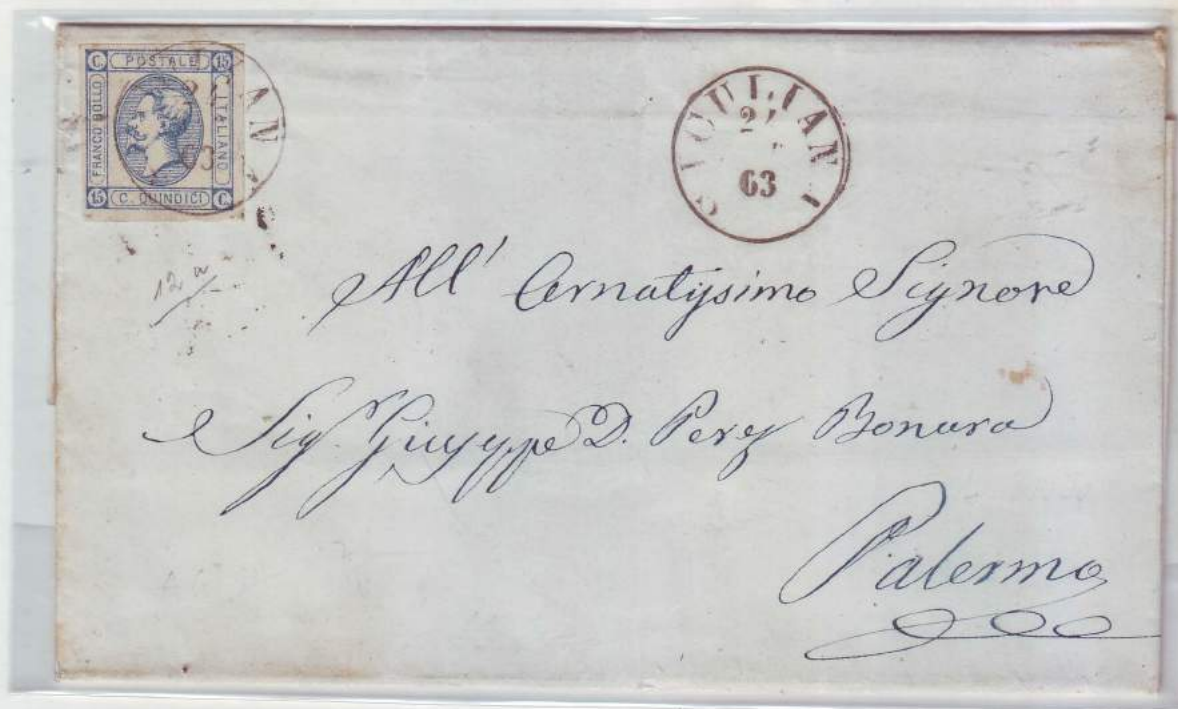 C. POSTALE 15
FRANCO BOLLO
ITALIANO
15 C. QUINDICI C.
GIGULIANI
63
12 a
All' Ornatissimo Signore
Sig. Giuseppe D. Perez Bonura
Palermo